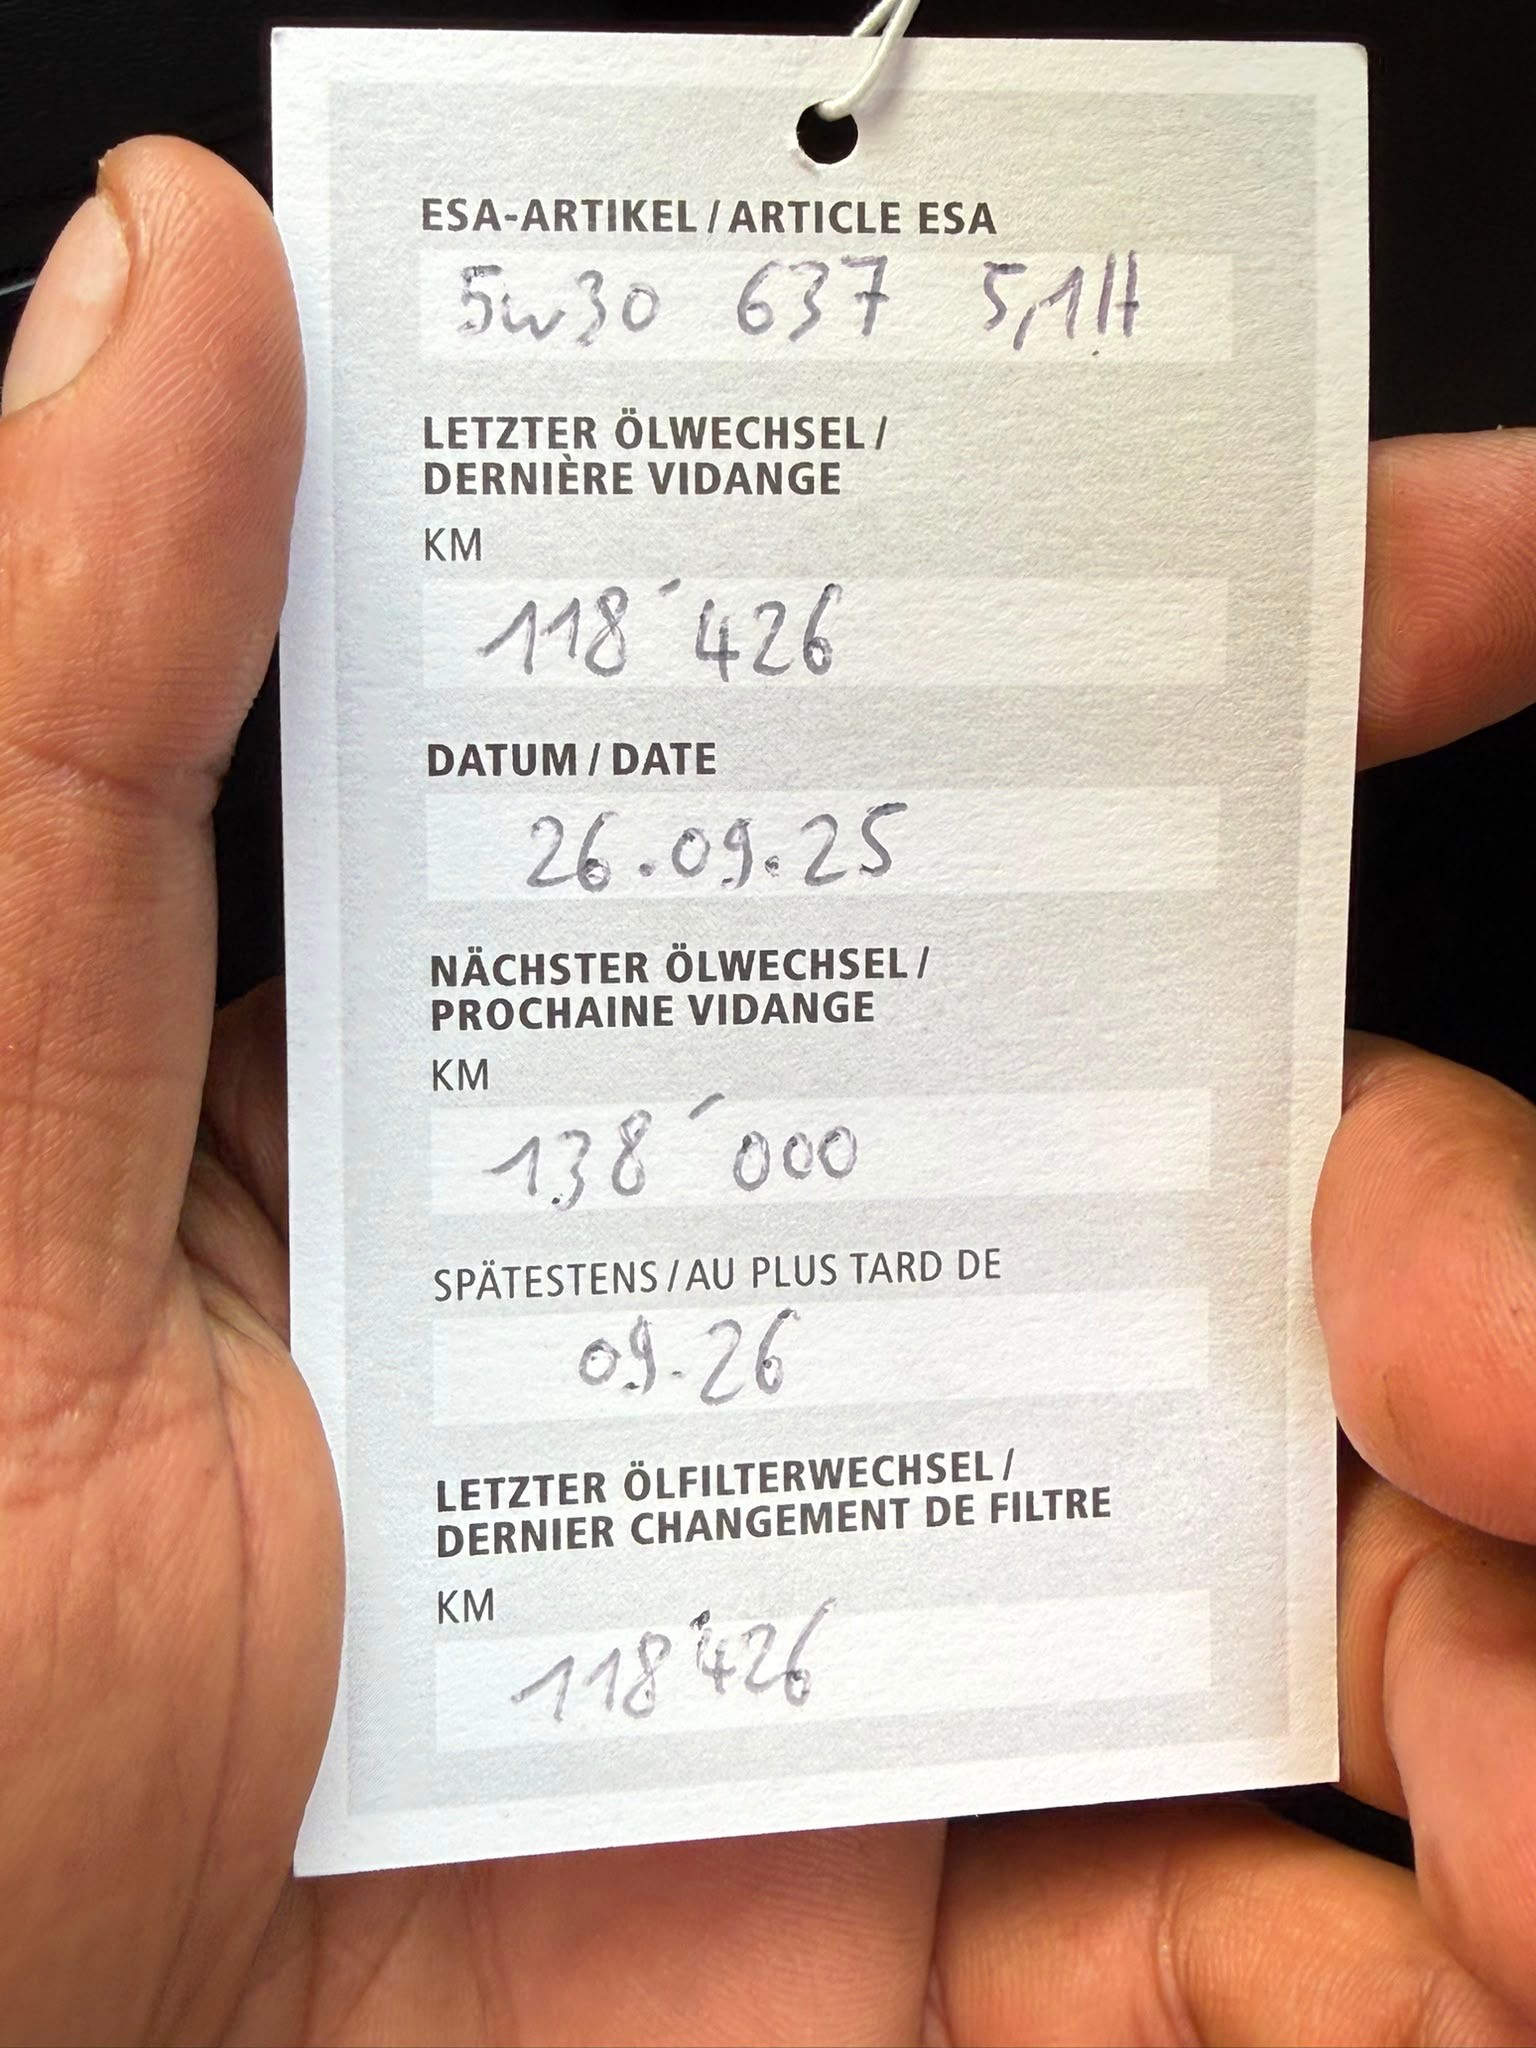 ESA-ARTIKEL / ARTICLE ESA
5w30 637 5,1lt
LETZTER ÖLWECHSEL /
DERNIÈRE VIDANGE
KM
118´426
DATUM / DATE
26.09.25
NÄCHSTER ÖLWECHSEL /
PROCHAINE VIDANGE
KM
138´000
SPÄTESTENS / AU PLUS TARD DE
09.26
LETZTER ÖLFILTERWECHSEL /
DERNIER CHANGEMENT DE FILTRE
KM
118´426